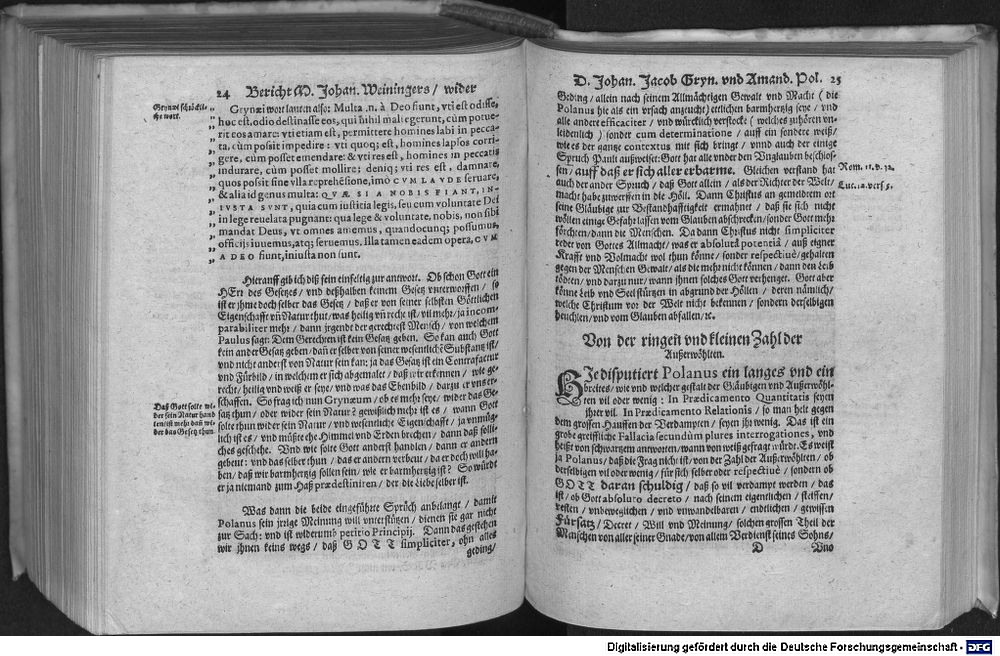 24 Bericht M. Johan. Weiningers / wider
Grynæi schröckli-
che wort.
Grynæi wort lauten also: Multa .n. à Deo fiunt, vti est odisse,
hoc est, odio destinasse eos, qui nihil mali egerunt, cùm potue-
rit eos amare: vti etiam est, permittere homines labi in pecca-
ta, cùm possit impedire: vti quoq; est, homines lapsos corri-
gere, cùm posset emendare: & vti res est, homines in peccatis
indurare, cùm posset mollire; deniq; vti res est, damnare,
quos possit sine vlla reprehēsione, imò CVM LAVDE seruare,
& alia id genus multa: QVÆ SI A NOBIS FIANT, IN-
IVSTA SVNT, quia cum iustitia legis, seu cum voluntate Dei
in lege reuelata pugnant: qua lege & voluntate, nobis, non sibi
mandat Deus, vt omnes amemus, quandocunq; possumus,
officijs iuuemus, atq; seruemus. Illa tamen eadem opera, CVM
A DEO fiunt, iniusta non sunt.
Hierauff gib ich diß sein einfeltig zur antwort. Ob schon Gott ein
HErr des Gesetzes / vnd deßhalben keinem Gesetz vnterworffen / so
ist er jhme doch selber das Gesetz / daß er von seiner selbsten Göttlichen
Eigenschafft vñ Natur thut / was heilig vñ recht ist / vil mehr / ja incom-
parabiliter mehr / dann jrgendt der gerechtest Mensch / von welchem
Paulus sagt: Dem Gerechten ist kein Gesatz geben. So kan auch Gott
kein ander Gesatz geben / dañ er selber von seiner wesentlichē Substantz ist /
vnd nicht anderst von Natur sein kan: ja das Gesatz ist ein Contrafactur
vnd Fürbild / in welchem er sich abgemalet / daß wir erkennen / wie ge-
recht / heilig vnd weiß er seye / vnd was das Ebenbild / darzu er vns er-
schaffen. So frag ich nun Grynæum / ob es mehr seye / wider das Ge-
satz thun / oder wider sein Natur? gewißlich mehr ist es / wann Gott
Daß Gott solte wi-
der sein Natur hand-
len / ist mehr dañ wi-
der das Gesetz thun.
solte thun wider sein Natur / vnd wesentliche Eigenschafft / ja vnmüg-
lich ist es / vnd müßte ehe Himmel vnd Erden brechen / dann daß solli-
ches geschehe. Vnd wie solte Gott anderst handlen / dann er andern
gebeut: vnd das selber thun / das er andern verbeut / da er doch will ha-
ben / daß wir barmhertzig sollen sein / wie er barmhertzig ist? So würdt
er ja niemand zum Haß prædestiniren / der die Liebe selber ist.
Was dann die beide eingeführte Sprüch anbelangt / damit
Polanus sein jrrige Meinung will vnterstützen / dienen sie gar nicht
zur Sach: vnd ist widerumb petitio Principij. Dann das gestehen
wir jhnen keins wegs / daß GOTT simpliciter, ohn alles
geding /
D. Johan. Jacob Gryn. vnd Amand. Pol. 25
Geding / allein nach seinem Allmächtigen Gewalt vnd Macht ( die
Polanus hie als ein vrsach anzeucht) etlichen barmhertzig seye / vnd
alle andere efficaciter / vnd würcklich verstocke ( welches zuhören vn-
leidenlich ) sonder cum determinatione / auff ein sondere weiß /
wie es der gantze contextus mit sich bringt / vnnd auch der einige
Spruch Pauli außweiset: Gott hat alle vnder den Vnglauben beschlos-
sen / auff daß er sich aller erbarme. Gleichen verstand hat
Rom. 11. v. 32.
auch der ander Spruch / daß Gott allein / als der Richter der Welt /
Luc. 12. vers 5.
macht habe zuwerffen in die Höll. Dann Christus an gemeldtem ort
seine Gläubige zur Bestandhafftigkeit ermahnet / daß sie sich nicht
wöllen einige Gefahr lassen vom Glauben abschrecken / sonder Gott mehr
förchten / dann die Menschen. Da dann Christus nicht simpliciter
redet von Gottes Allmacht / was er absolutâ potentiâ / auß eigner
Krafft vnd Volmacht wol thun könne / sonder respectiuè / gehalten
gegen der Menschen Gewalt / als die mehr nicht können / dann den Leib
tödten / vnd darzu nur / wann jhnen solches Gott verhenget. Gott aber
könne Leib vnd Seel stürtzen in abgrund der Höllen / deren nämlich /
welche Christum vor der Welt nicht bekennen / sondern derselbigen
heuchlen / vnd vom Glauben abfallen / ꝛc.
Von der ringen vnd kleinen Zahl der
Außerwöhlten.
HJe disputiert Polanus ein langes vnd ein
breites / wie vnd welcher gestalt der Gläubigen vnd Außerwöhl-
ten vil oder wenig : In Prædicamento Quantitatis seyen
jhrer vil. In Prædicamento Relationis / so man helt gegen
dem grossen Hauffen der Verdampten / seyen jhr wenig. Das ist ein
grobe greiffliche Fallacia secundùm plures interrogationes, vnd
heißt von schwartzem antworten / wann von weiß gefragt würdt. Es weißt
ja Polanus / daß die Frag nicht ist / von der Zahl der Außerwöhlten / ob
derselbigen vil oder wenig / für sich selber oder respectiuè / sondern ob
GOTT daran schuldig / daß so vil verdampt werden / das
ist / ob Gott absoluto decreto / nach seinem eigentlichen / steiffen /
vesten / vnbeweglichen / vnd vnwandelbaren / endtlichen / gewissen
Fürsatz / Decret / Will vnd Meinung / solchen grossen Theil der
Menschen von aller seiner Gnade / von allem Verdienst seines Sohns /
D Vnd
Digitalisierung gefördert durch die Deutsche Forschungsgemeinschaft - DFG